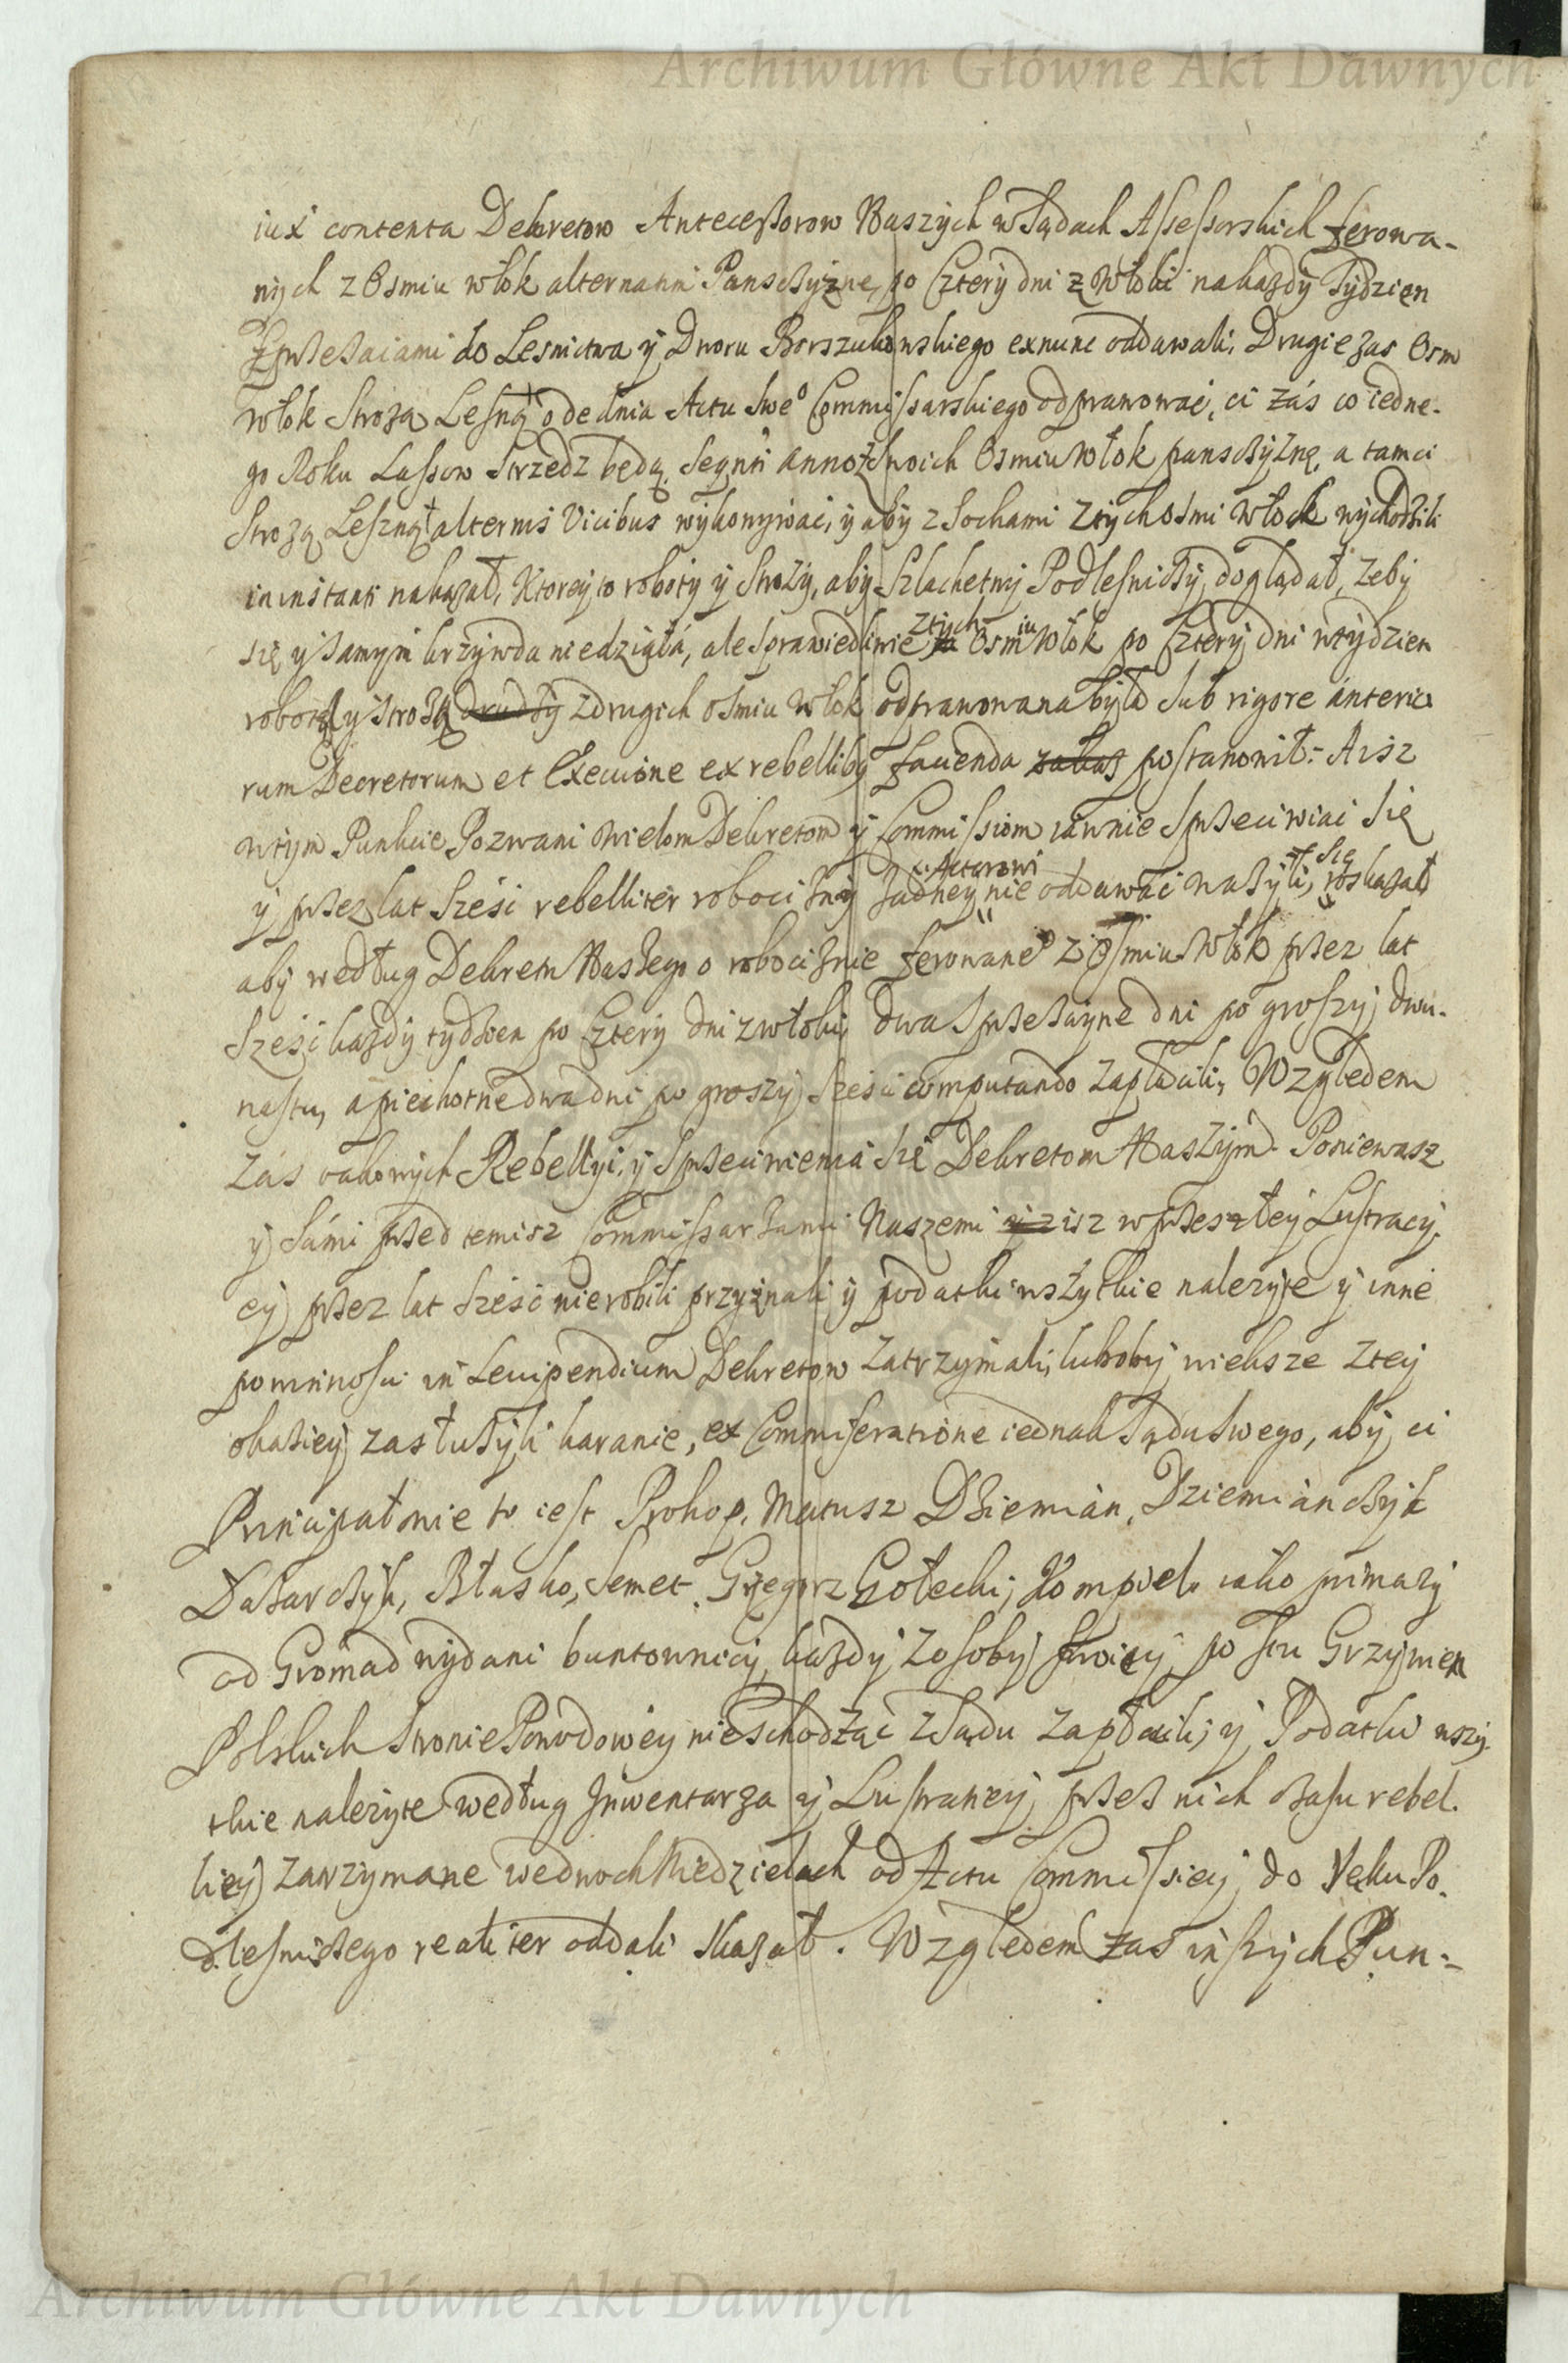 Archiwum Główne Akt Dawnych
iux contenta Dekretow Antecessorow Naszych w Sądach Assessorskich ferowa-
nych z Osmiu włok alternatim Panszczyznę, po Cztery dni z Włoki na kazdy Tydzien
z przestaiami do Lesnictwa y Dworu Borszukowskiego exnunc oddawali, Drugie zas Osm
włok Strozą Lesną ode dnia Actu Swe° Commissarskiego odprawować, ci zás co iedne-
go Roku Lassow Strzedz będą, seqnti anno z Swoich Osmiu Włok panszczyznę, a tamci
Strozą Leszną alternis Vicibus wykonywać, y aby z Sochami z tych osmi włock wychodzili
in instanti nakazał, Ktorey to roboty y Stroży, aby Szlachetny Podlesniczy, doglądał, żeby
się y samym krzywda niedziałá, ale Sprawiedliwie z tych Osmiu Włok po Cztery dni w tydzien
robotą y Strożą z drugich osmiu Włok odprawowana była sub rigore anterio
rum Decretorum et Execuione ex rebellibus facienda postanowił. A isz
w tym Punkcie Pozwani wielom Dekretom y Commissiom iawnie Sprzeciwiać Się
y przez lat Sześć rebelliter robocizny żadney Actorowi nie oddawać ważyli Się, roskazał
aby według Dekretu Naszego o robociznie ferowane° z Osmiu Włok przez lat
Sześć kazdy tydzien po Cztery dni z włoki dwa Sprzezayne dni po groszy dwu-
nastu, a piechotne dwa dni po groszy Sześci computando zapłacili, Względem
Zás takowych Rebelliy, y Sprzeciwienia Się Dekretom Naszym. Poniewasz
y Sámi przed temisz Commissarzami Naszemi isz w przeszłey Lustracy-
ey przez lat Sześć nie robili przyznali y podatki wszytkie należyte y inne
powinności in Levipendium Dekretow zatrzymali, luboby wieksze z tey
okaziey zasłużyli karanie, ex Commiseratione iednak Sądu Swego, aby ci
Principałowie to iest Prokop, Matusz Dziemian, Dziemianczyk
Dasarczyk, Błasko, Semet, Grzegorz Gołecki, Kompiel iako primarÿ
od Gromad wydani buntownicy, kazdy z osoby Swoiey po stu Grzywien
Polskich Stronie Powodowey nieschodząc z Sądu zapłacili, y Podatki wszy-
tkie należyte według Inwentarza y Lustracyey przez nich czasu rebel-
liey zatrzymane we dwoch Niedzielach od Actu Commissiey do Ręku Po-
dlesniczego realiter oddali skazał. Względem zas inszych Pun-
Archiwum Główne Akt Dawnych